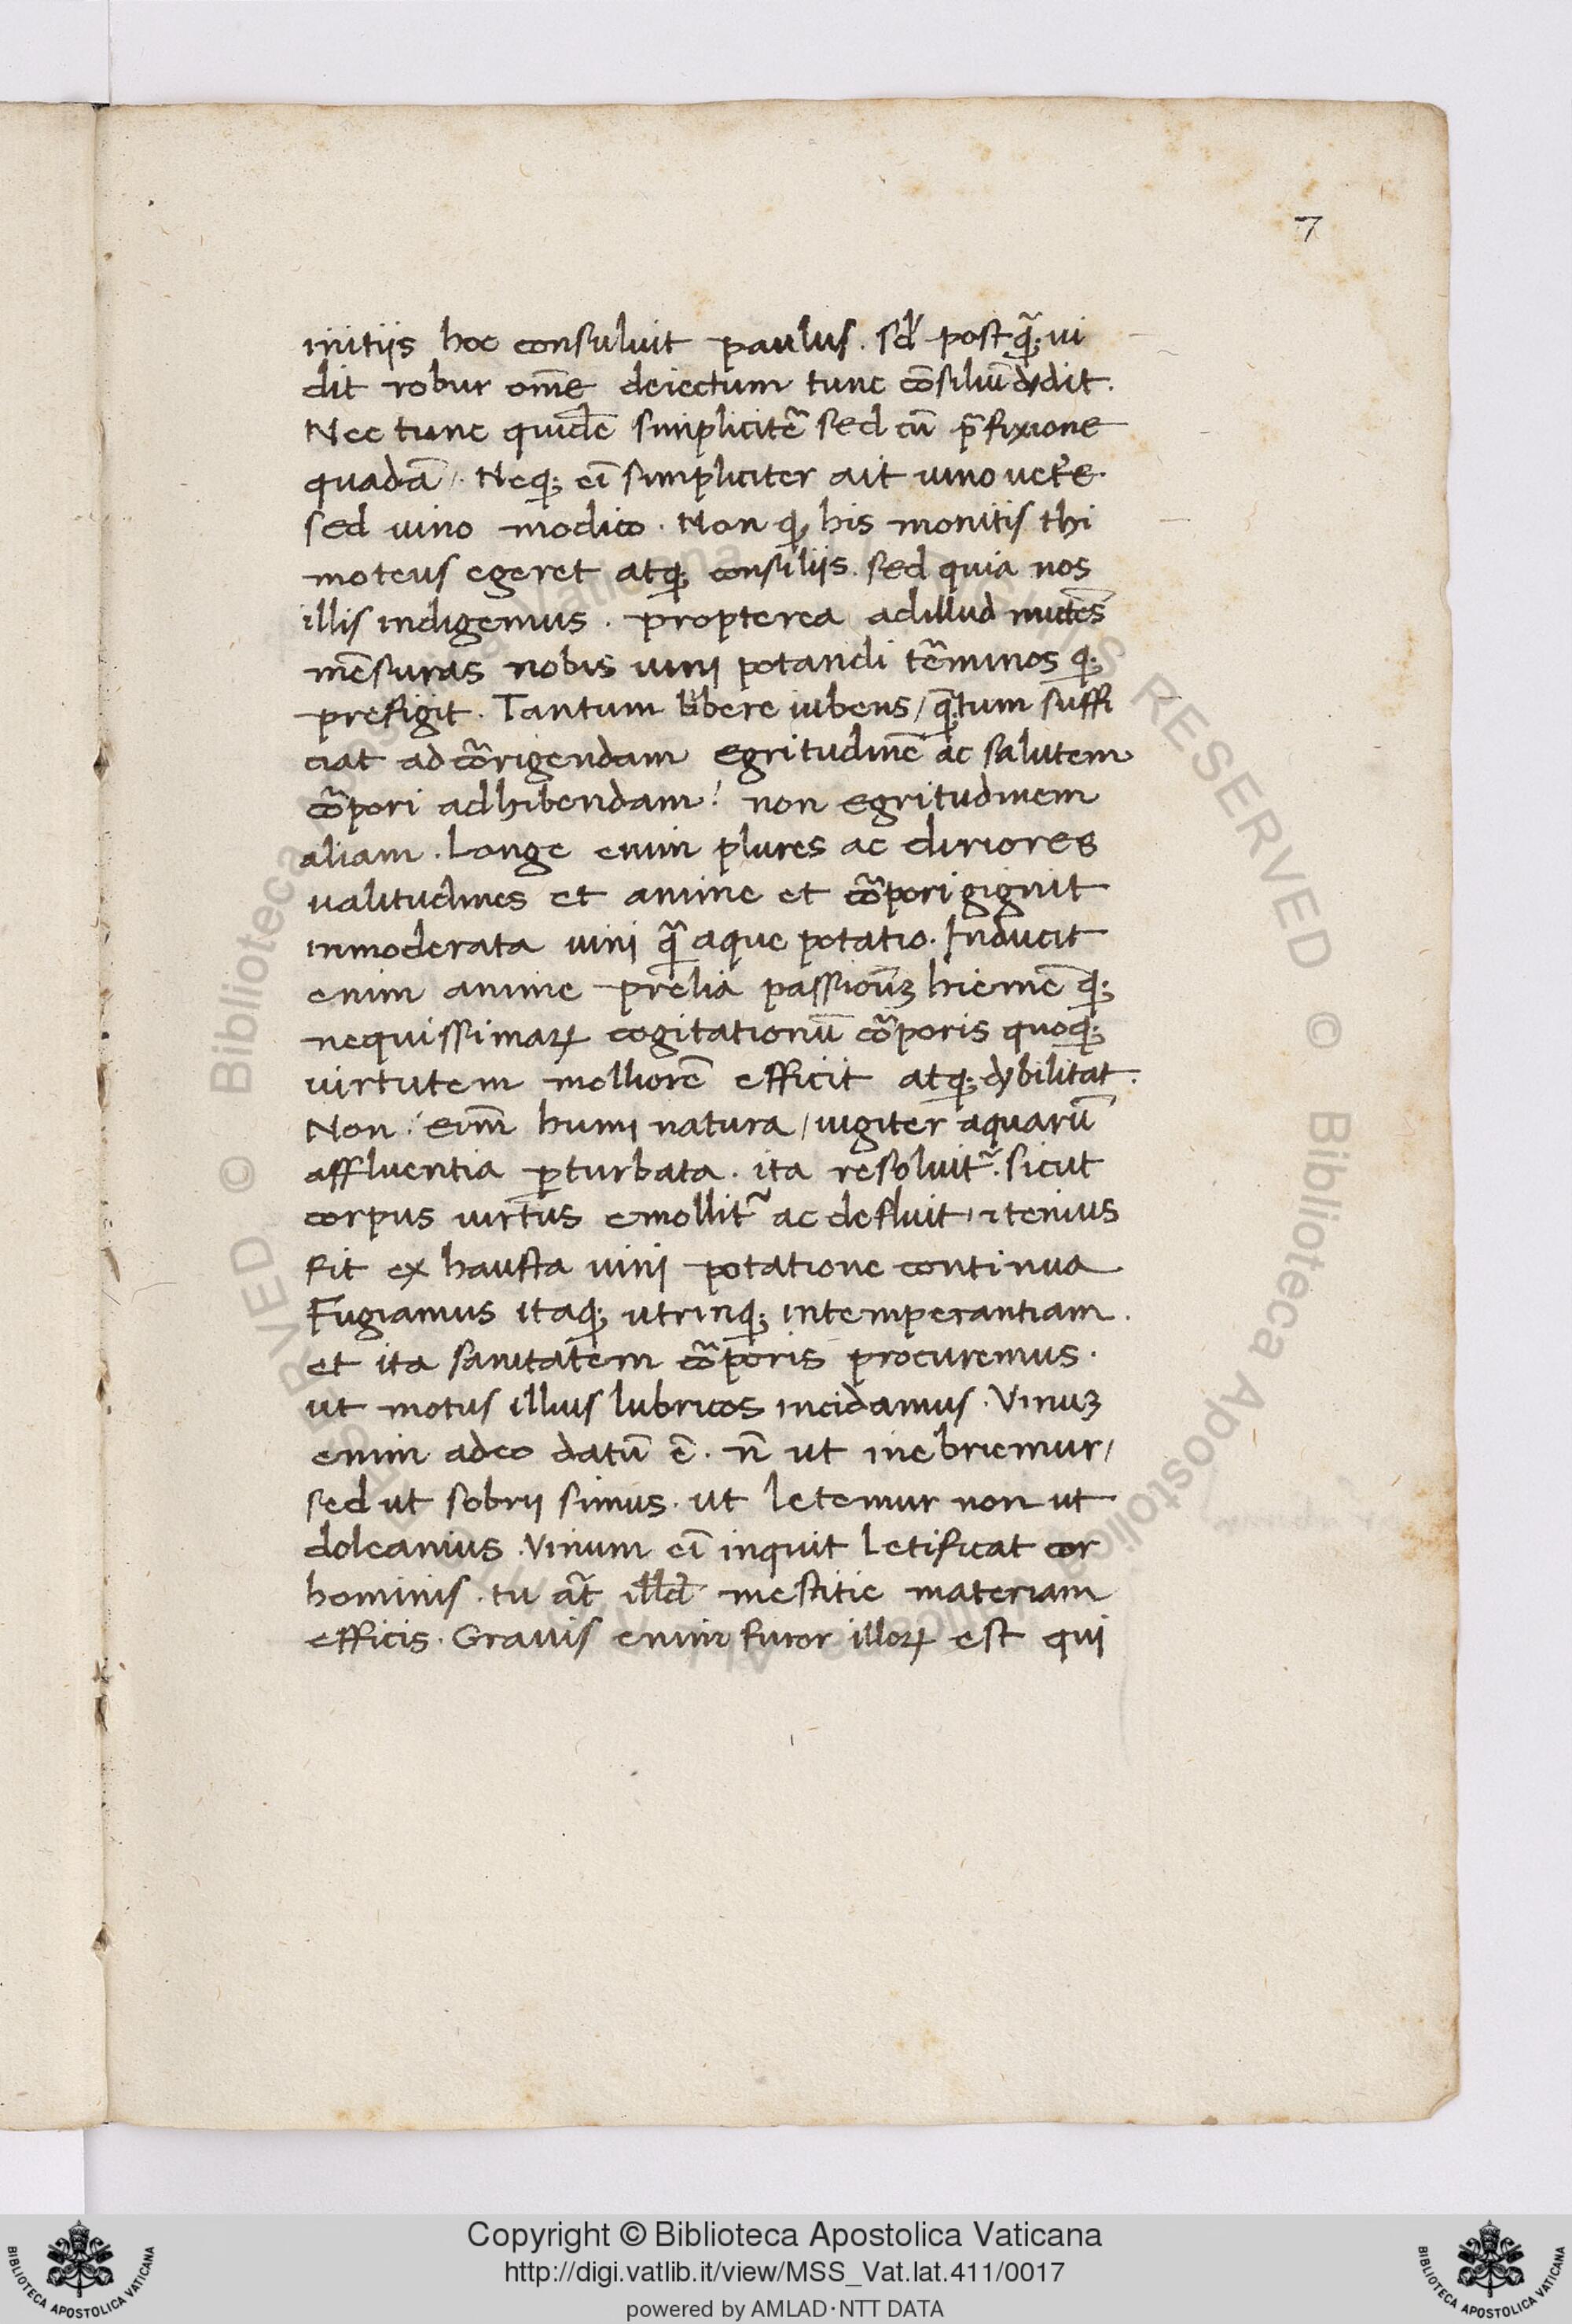 7
initiis hoc consuluit paulus. sd' postq̃; ui
dit robur om̄e deiectum tunc cōsiliū dedit.
Nec tunc quidē simplicitẽ sed cū p̃fixione
quadā/. Neq; eī simpliciter ait uino utē̃re.
sed uino modico. Non q; his monitis thi
moteus egeret atq; consiliis. sed quia nos
illis indigemus. propterea ad illud
mēsuras nobis uini potandi tẽminos q;
prefigit. Tantum bibere iubens/ q̃tum suffi
ciat ad cõrigendam egritudinē ac salutem
cõpori adhibendam! non egritudinem
aliam. Longe enim plures ac diriores
ualitudines et anime et cõpori gignit
inmoderata uini q̃ aque potatio. Inducit
enim anime prelia passionūꝫ hiemē q;
nequissimaꝝ cogitationū cõporis quoq;
uirtutem molliorē efficit atq; debilitat.
Non. enīm humi natura/ iugiter aquarū
affluentia ꝑturbata. ita resoluit᷑. sicut
corpus uirtus emollit᷑ ac defluit, ⁊ tenius
fit ex hausta uini potatione continua
Fugiamus itaq; utrinq; intemperantiam.
et ita sanitatem cõporis procuremus.
ut motus illius lubricos incidamus. Vinuꝫ
enim adeo datū ē. n̄ ut inebriemur/
sed ut sobrii simus. ut letemur non ut
doleamus. Vinum eī inquit letificat cor
hominis. tu aũt illd̄ mestitie materiam
efficis. Grauis enim furor illoꝝ est qui
© Biblioteca Apostolica Vaticana ALL RIGHTS RESERVED
Copyright © Biblioteca Apostolica Vaticana
http://digi.vatlib.it/view/MSS_Vat.lat.411/0017
powered by AMLAD·NTT DATA
BIBLIOTECA APOSTOLICA VATICANA
BIBLIOTECA APOSTOLICA VATICANA